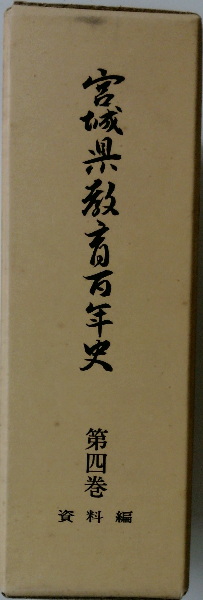 宮城県教育百年史
第四巻
資料編